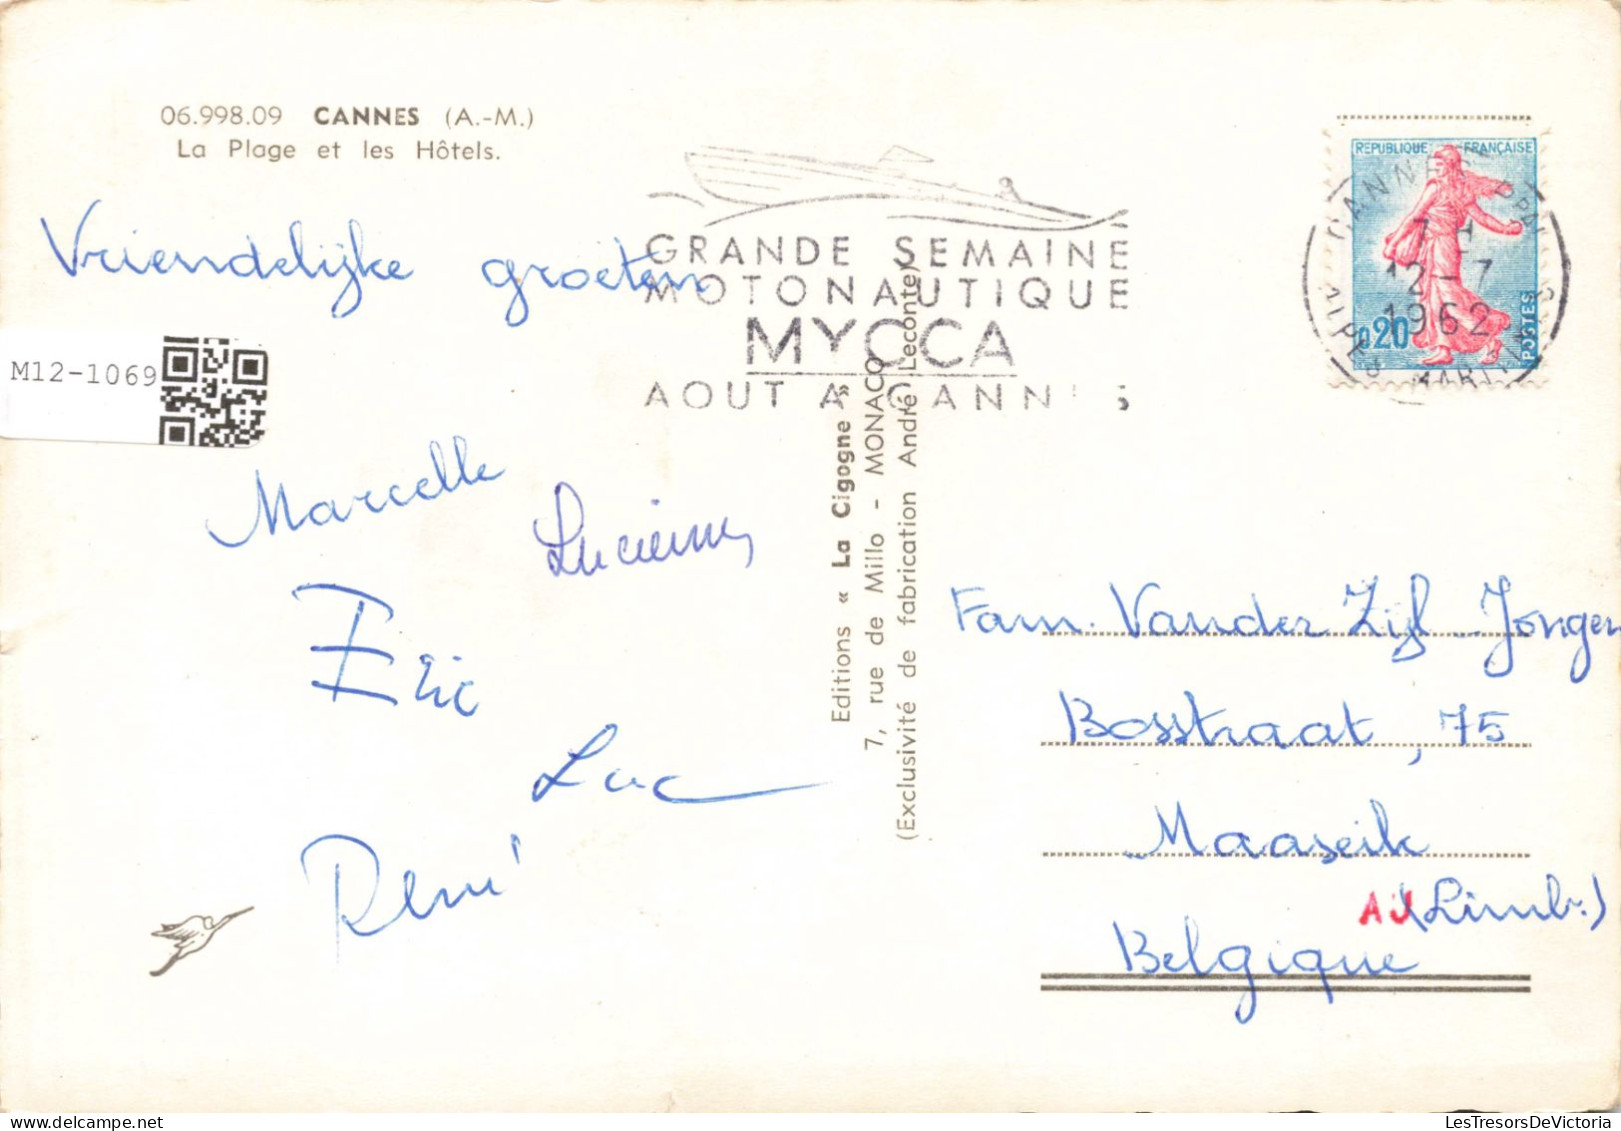 06.998.09 CANNES (A.-M.)
La Plage et les Hôtels.
Vriendelijke groeten
M12-1069
GRANDE SEMAINE
MOTONAUTIQUE
MYCCA
AOUT A CANNES
REPUBLIQUE FRANÇAISE
0,20
POSTES
CANNES PPAL
7 H
12-7
1962
ALPES MARITIMES
Marcelle
Lucienne
Eric
Luc
René
Editions « La Cigogne »
7, rue de Millo - MONACO
(Exclusivité de fabrication André Leconte)
Fam. Vander Zijl Jongen
Bosstraat, 75
Maaseik
AU
(Limb.)
Belgique
LesTresorsDeVictoria